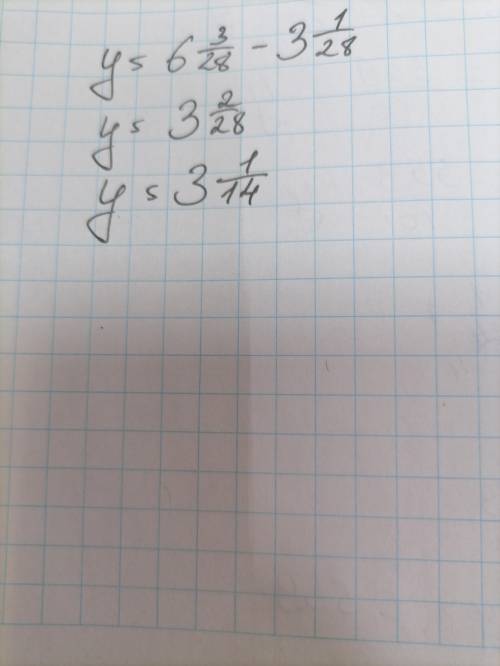 y = 6 3/28 - 3 1/28
y = 3 2/28
y = 3 1/14